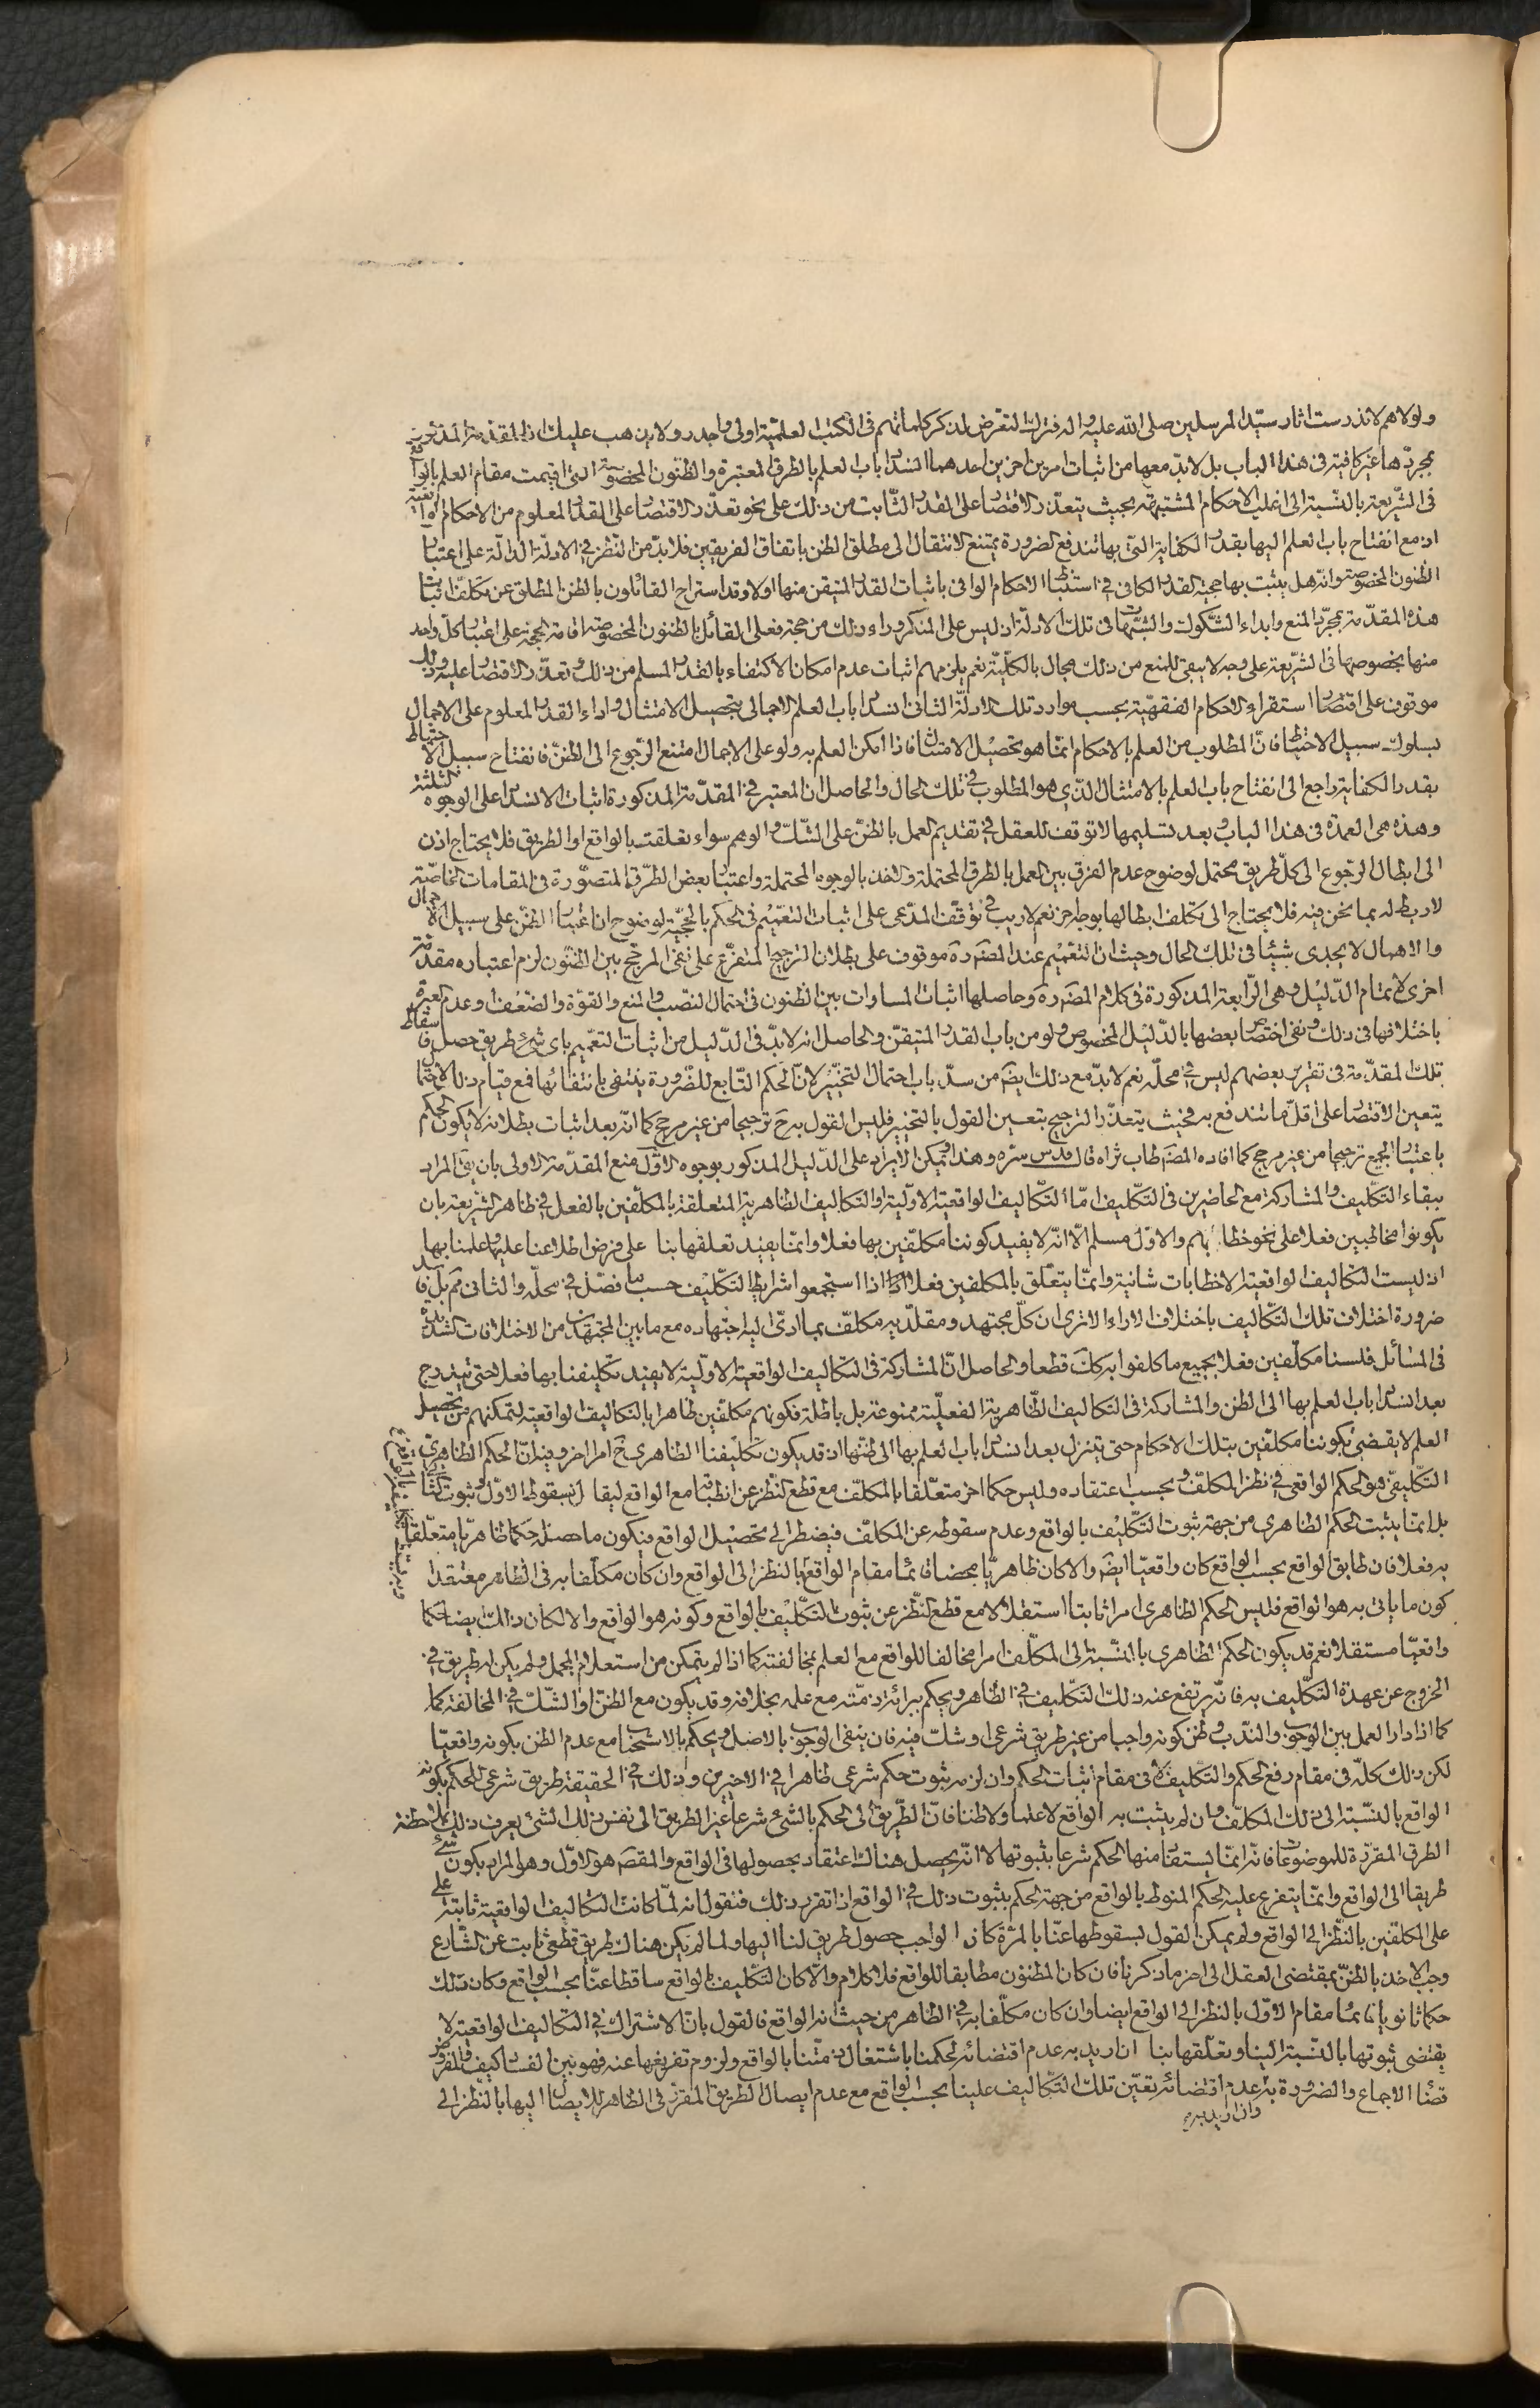 ولولاهم لاندرست اثار سيّد المرسلين صلى الله عليه واله فترك التعرّض لذكر كلماتهم فى الكتب العلميّة اولى واجدر ولا يذهب عليك ان المقدّمة المذكورة
بمجردّها غير كافية فى هذا الباب بل لابدّ معها من اثبات امرين اخرين احدهما انسداد باب العلم بالطرق المعتبرة والظنون المخصوصة التى اقيمت مقام العلم بالواقع
فى الشّريعة بالنّسبة الى اغلب الاحكام المشتبهة بحيث يتعذّر الاقتصار على القدر الثّابت من ذلك على نحو تعذّر الاقتصار على القدر المعلوم من الاحكام الواقعية
اذ مع انفتاح باب العلم اليها بقدر الكفاية التى بها تندفع الضرورة يمتنع الانتقال الى مطلق الظن باتفاق الفريقين فلابدّ من النّظر فى الادلّة الدالّة على اعتبار
الظنون المخصوصة وانّه هل يثبت بها حجية القدر الكافى فى استنباط الاحكام الوافى باثبات القدر المتيقن منها اولا وقد استراح القائلون بالظن المطلق عن تكلّف اثبات
هذه المقدّمة بمجرّد المنع وابداء الشّكوك والشّبهات فى تلك الادلّة اذ ليس على المنكر وراء ذلك من حجة فعلى القائل بالظنون المخصوصة اقامة الحجة على اعتبار كلّ واحد
منها بخصوصها فى الشّريعة على وجه لا يبقى للمنع من ذلك مجال بالكلّيّة نعم يلزمهم اثبات عدم امكان الاكتفاء بالقدر المسلم من ذلك وتعذّر الاقتصار عليه وذلك
موقوف على اقتصار استقراء الاحكام الفقهيّة بحسب موارد تلك الادلّة الثانى انسداد باب العلم الاجمالى بتحصيل الامتثال واداء القدر المعلوم على الاجمال
بسلوك سبيل الاحتياط فانّ المطلوب من العلم بالاحكام انّما هو تحصيل الامتثال فاذا امكن العلم به ولو على الاجمال امتنع الرّجوع الى الظنّ فانفتاح سبيل الاحتياط
بقدر الكفاية راجع الى انفتاح باب العلم بالامتثال الّذى هو المطلوب فى تلك الحال والحاصل ان المعتبر فى المقدّمة المذكورة اثبات الانسداد على الوجوه الثلثة
وهذه هى العمدة فى هذا الباب وبعد تسليمها لا توقف للعقل فى تقديم العمل بالظنّ على الشّكّ والوهم سواء تعلّقت بالواقع او الطريق فلا يحتاج اذن
الى ابطال الرجوع الى كلّ طريق محتمل لوضوح عدم الفرق بين العمل بالطرق المحتملة والاخذ بالوجوه المحتملة واعتبار بعض الطّرق المتصوّرة فى المقامات الخاصّة
لا ربط له بما نحن فيه فلا يحتاج الى تكلّف ابطالها بوجه اخر نعم لا ريب فى توقّف المدّعى على اثبات التعميم فى الحكم بالحجّيّة لوضوح ان اعتبار الظنّ على سبيل الاجمال
والاهمال لا يجدى شيئا فى تلك الحال وحيث ان التعميم عند المصنف ره موقوف على بطلان الترجيح المتفرّع على نفى المرجّح بين الظنّون لزم اعتباره مقدّمة
اخرى لاتمام الدّليل وهى الرّابعة المذكورة فى كلام المصنف ره وحاصلها اثبات المساوات بين الظنون فى احتمال النصّب والمنع والقوّة والضعف وعدم العبرة
باختلافها فى ذلك ونفى اختصاص بعضها بالدّليل المخصوص ولو من باب القدر المتيقنّ والحاصل انه لابدّ فى الدّليل من اثبات التعميم باى طريق حصل فاسقاط
تلك المقدّمة فى تقرير بعضهم ليس فى محلّه نعم لابدّ مع ذلك ايضا من سدّ باب احتمال التخيّير لانّ الحكم التّابع للضّرورة ينتفى بانتفائها فمع قيام ذلك الاحتمال
يتعين الاقتصار على اقلّ ما تندفع به فحيث يتعذّر الترجيح يتعين القول بالتخيير فليس القول به ح ترجيحا من غير مرجح كما انّه بعد اثبات بطلانه لا يكون الحكم
باعتبار الجميع ترجيحا من غير مرجح كما افاده المصنف طاب ثراه قال قدس سرّه وهذا ويمكن الايراد على الدّليل المذكور بوجوه الاوّل منع المقدّمة الاولى بان يقال المراد
ببقاء التكّليف والمشاركة مع الحاضرين فى التكّليف امّا التكّاليف الواقعية الاوّلية او التكاليف الظاهرية المتعلقة بالمكلّفين بالفعل فى ظاهر الشّريعة بان
يكونوا مخاطبين فعلا على نحو خطابهم والاوّل مسلم الّا انّه لا يفيد كوننا مكلّفين بها فعلا وانمّا يفيد تعلقها بنا على فرض اطلاعنا عليها وعلمنا بها
اذ ليست التكاليف الواقعية الا خطابات شانية وانمّا يتعلّق بالمكلفين فعلا اذا استجمعوا شرايط التكّليف حسب ما فصّل فى محلّه والثانى مم بل فاسد
ضرورة اختلاف تلك التكّاليف باختلاف الاراء الا ترى ان كلّ مجتهد ومقلّديه مكلّف بما ادّى اليه اجتهاده مع ما بين المجتهدين من الاختلافات الشديدة
فى المسائل فلسنا مكلّفين فعلا بجميع ما كلفوا به كك قطعا والحاصل انّ المشاركة فى التكّاليف الواقعية الاوّلية لا يفيد تكليفنا بها فعلا حتى يندرج
بعد انسداد باب العلم بها الى الظن والمشاركة فى التكاليف الظّاهرية الفعليّة ممنوعة بل باطلة فكونهم مكلّفين ظاهرا بالتكاليف الواقعية لتمكنهم من تحصيل
العلم لا يقضى بكوننا مكلّفين بتلك الاحكام حتى يتنزل بعد انسداد باب العلم بها الى ظنّها اذ قد يكون تكليفنا الظاهرى ح امرا اخر وفيه انّ الحكم الظاهرى
التكّليفى هو الحكم الواقعى فى نظر المكلّف وبحسب اعتقاده وليس حكما اخر متعلّقا بالمكلّف مع قطع النّظر عن انطباقه مع الواقع ليقال بسقوط الاوّل وثبوت الثانى
بل انمّا يثبت الحكم الظاهرى من جهة ثبوت التكّليف بالواقع وعدم سقوطه عن المكلف فيضطر الى تحصيل الواقع فيكون ما حصله حكما ظاهريّا متعلّقا
به فعلا فان طابق الواقع بحسب الواقع كان واقعيّا ايضا والا كان ظاهريّا محضا قائما مقام الواقع بالنظر الى الواقع وان كان مكلّفا به فى الظاهر معتقدا
كون ما ياتى به هو الواقع فليس الحكم الظاهرى امرا ثابتا استقلالا مع قطع النّظر عن ثبوت التكّليف بالواقع وكونه هو الواقع والا لكان ذلك ايضا حكما
واقعيّا مستقلا نعم قد يكون الحكم الظاهرى بالنّسبة الى المكلّف امرا مخالفا للواقع مع العلم بمخالفته كما اذا لم يتمكن من استعلام المجمل ولم يكن له طريق فى
الخروج عن عهدة التكّليف به فانّه يرتفع عنه ذلك التكّليف فى الظّاهر ويحكم ببرائة ذمّته مع علمه بخلافه وقد يكون مع الظنّ او الشّكّ فى المخالفة كما
كما اذا دار العمل بين الوجوب والندب وظن كونه واجبا من غير طريق شرعى او شكّ فيه فان ينفى الوجوب بالاصل ويحكم بالاستحباب مع عدم الظن بكونه واقعيّا
لكن ذلك كلّه فى مقام رفع الحكم والتكّليف لا فى مقام اثبات الحكم وان لزمه ثبوت حكم شرعى ظاهرا فى الاخيرين وذلك فى الحقيقة طريق شرعى للحكم بكونه
الواقع بالنسّبة الى ذلك المكلّف وان لم يثبت به الواقع لا علما ولا ظنا فانّ الطّريق الى الحكم بالشئ شرعا غير الطريق الى نفس ذلك الشئ يعرف ذلك بملاحظة
الطرق المقرّرة للموضوعات فانّه انمّا يستفاد منها الحكم شرعا بثبوتها لا انّه يحصل هناك اعتقاد بحصولها فى الواقع والمقصود هو الاوّل وهو المراد بكون شئ
طريقا الى الواقع وانمّا يتفرع عليه الحكم المنوط بالواقع من جهة الحكم بثبوت ذلك فى الواقع اذا تقرر ذلك فنقول انه لمّا كانت التكاليف الواقعية ثابتة على
على المكلّفين بالنّظر الى الواقع ولم يمكن القول بسقوطها عنّا بالمرّة كان الواجب حصول طريق لنا اليها ولما لم يكن هناك طريق قطعى ثابت عن الشّارع
وجب الاخذ بالظنّ بمقتضى العقل الى اخر ما ذكرنا فان كان المظنون مطابقا للواقع فلا كلام والّا كان التكّليف بالواقع ساقطا عنّا بحسب الواقع وكان ذلك
حكما ثانويا قائما مقام الاوّل بالنظر الى الواقع ايضا وان كان مكلّفا به فى الظاهر من حيث انه الواقع فالقول بانّ الاشتراك فى التكاليف الواقعية لا
يقتضى ثبوتها بالنسبة الينا وتعلّقها بنا ان اريد به عدم اقتضائه لحكمنا باشتغال ذمّتنا بالواقع ولزوم تفريغها عنه فهو بيّن الفساد كيف والمفروض
قضاء الاجماع والضّرورة به عدم اقتضائه تعيّن تلك التكّاليف علينا بحسب الواقع مع عدم ايصال الطريق المقرّر فى الظاهر للايصال اليها بالنّظر الى
وان اريد به